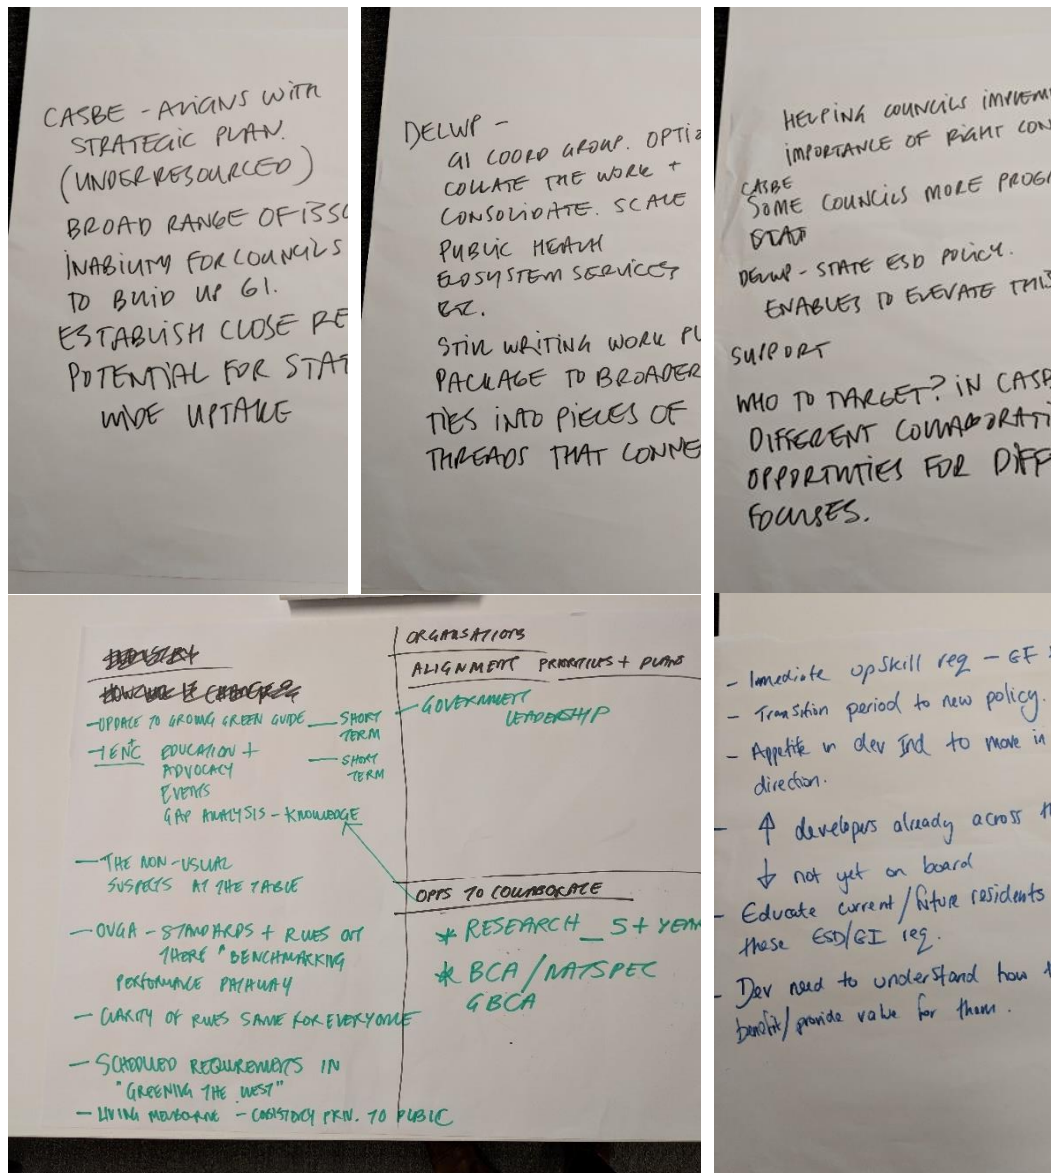 CASBE - ALIGNS WITH
STRATEGIC PLAN.
(UNDERRESOURCED)
BROAD RANGE OF ISSU
INABILITY FOR COUNCILS
TO BUILD UP GI.
ESTABLISH CLOSE RE
POTENTIAL FOR STAT
WIDE UPTAKE
DELWP -
GI COORD GROUP. OPTIO
COLLATE THE WORK +
CONSOLIDATE. SCALE
PUBLIC HEALTH
ECOSYSTEM SERVICES
ETC.
STILL WRITING WORK PL
PACKAGE TO BROADER
TIES INTO PIECES OF
THREADS THAT CONNE
HELPING COUNCILS IMPLEM
IMPORTANCE OF RIGHT CON
CASBE
SOME COUNCILS MORE PROG
STAT
DELWP - STATE ESD POLICY.
ENABLES TO ELEVATE THIS
SUPPORT
WHO TO TARGET? IN CASB
DIFFERENT COLLABORATI
OPPORTUNTIES FOR DIFF
FOCUSES.
- UPDATE TO GROWING GREEN GUIDE — SHORT
TERM
- TENC EDUCATION + — SHORT
TERM
ADVOCACY
EVENTS
GAP ANALYSIS - KNOWLEDGE
- THE NON-USUAL
SUSPECTS AT THE TABLE
- OVGA - STANDARDS + RULES OUT
THERE "BENCHMARKING
PERFORMANCE PATHWAY
- CLARITY OF RULES SAME FOR EVERYONE
- SCHEDULED REQUIREMENTS IN
"GREENING THE WEST"
- LIVING MELBOURNE - CONSISTENCY PRIV. TO PUBLIC
ORGANSATIONS
ALIGNMENT PRIORITIES + PLANS
- GOVERNMENT
LEADERSHIP
OPPS TO COLLABORATE
* RESEARCH _ 5+ YEAR
* BCA / NATSPEC
GBCA
- Immediate upskill req - GF
- Transition period to new policy.
- Appetite in dev Ind to move in
direction.
- ↑ developers already across th
↓ not yet on board
- Educate current/future residents
these ESD/GI req.
- Dev need to understand how t
benefit/provide value for them.